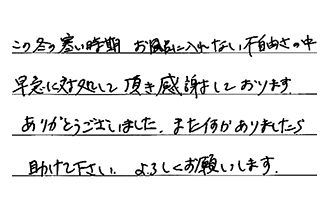 この冬の寒い時期 お風呂に入れない不自由さの中
早急に対処して頂き感謝しております.
ありがとうございました. また何かありましたら
助けて下さい. よろしくお願いします.